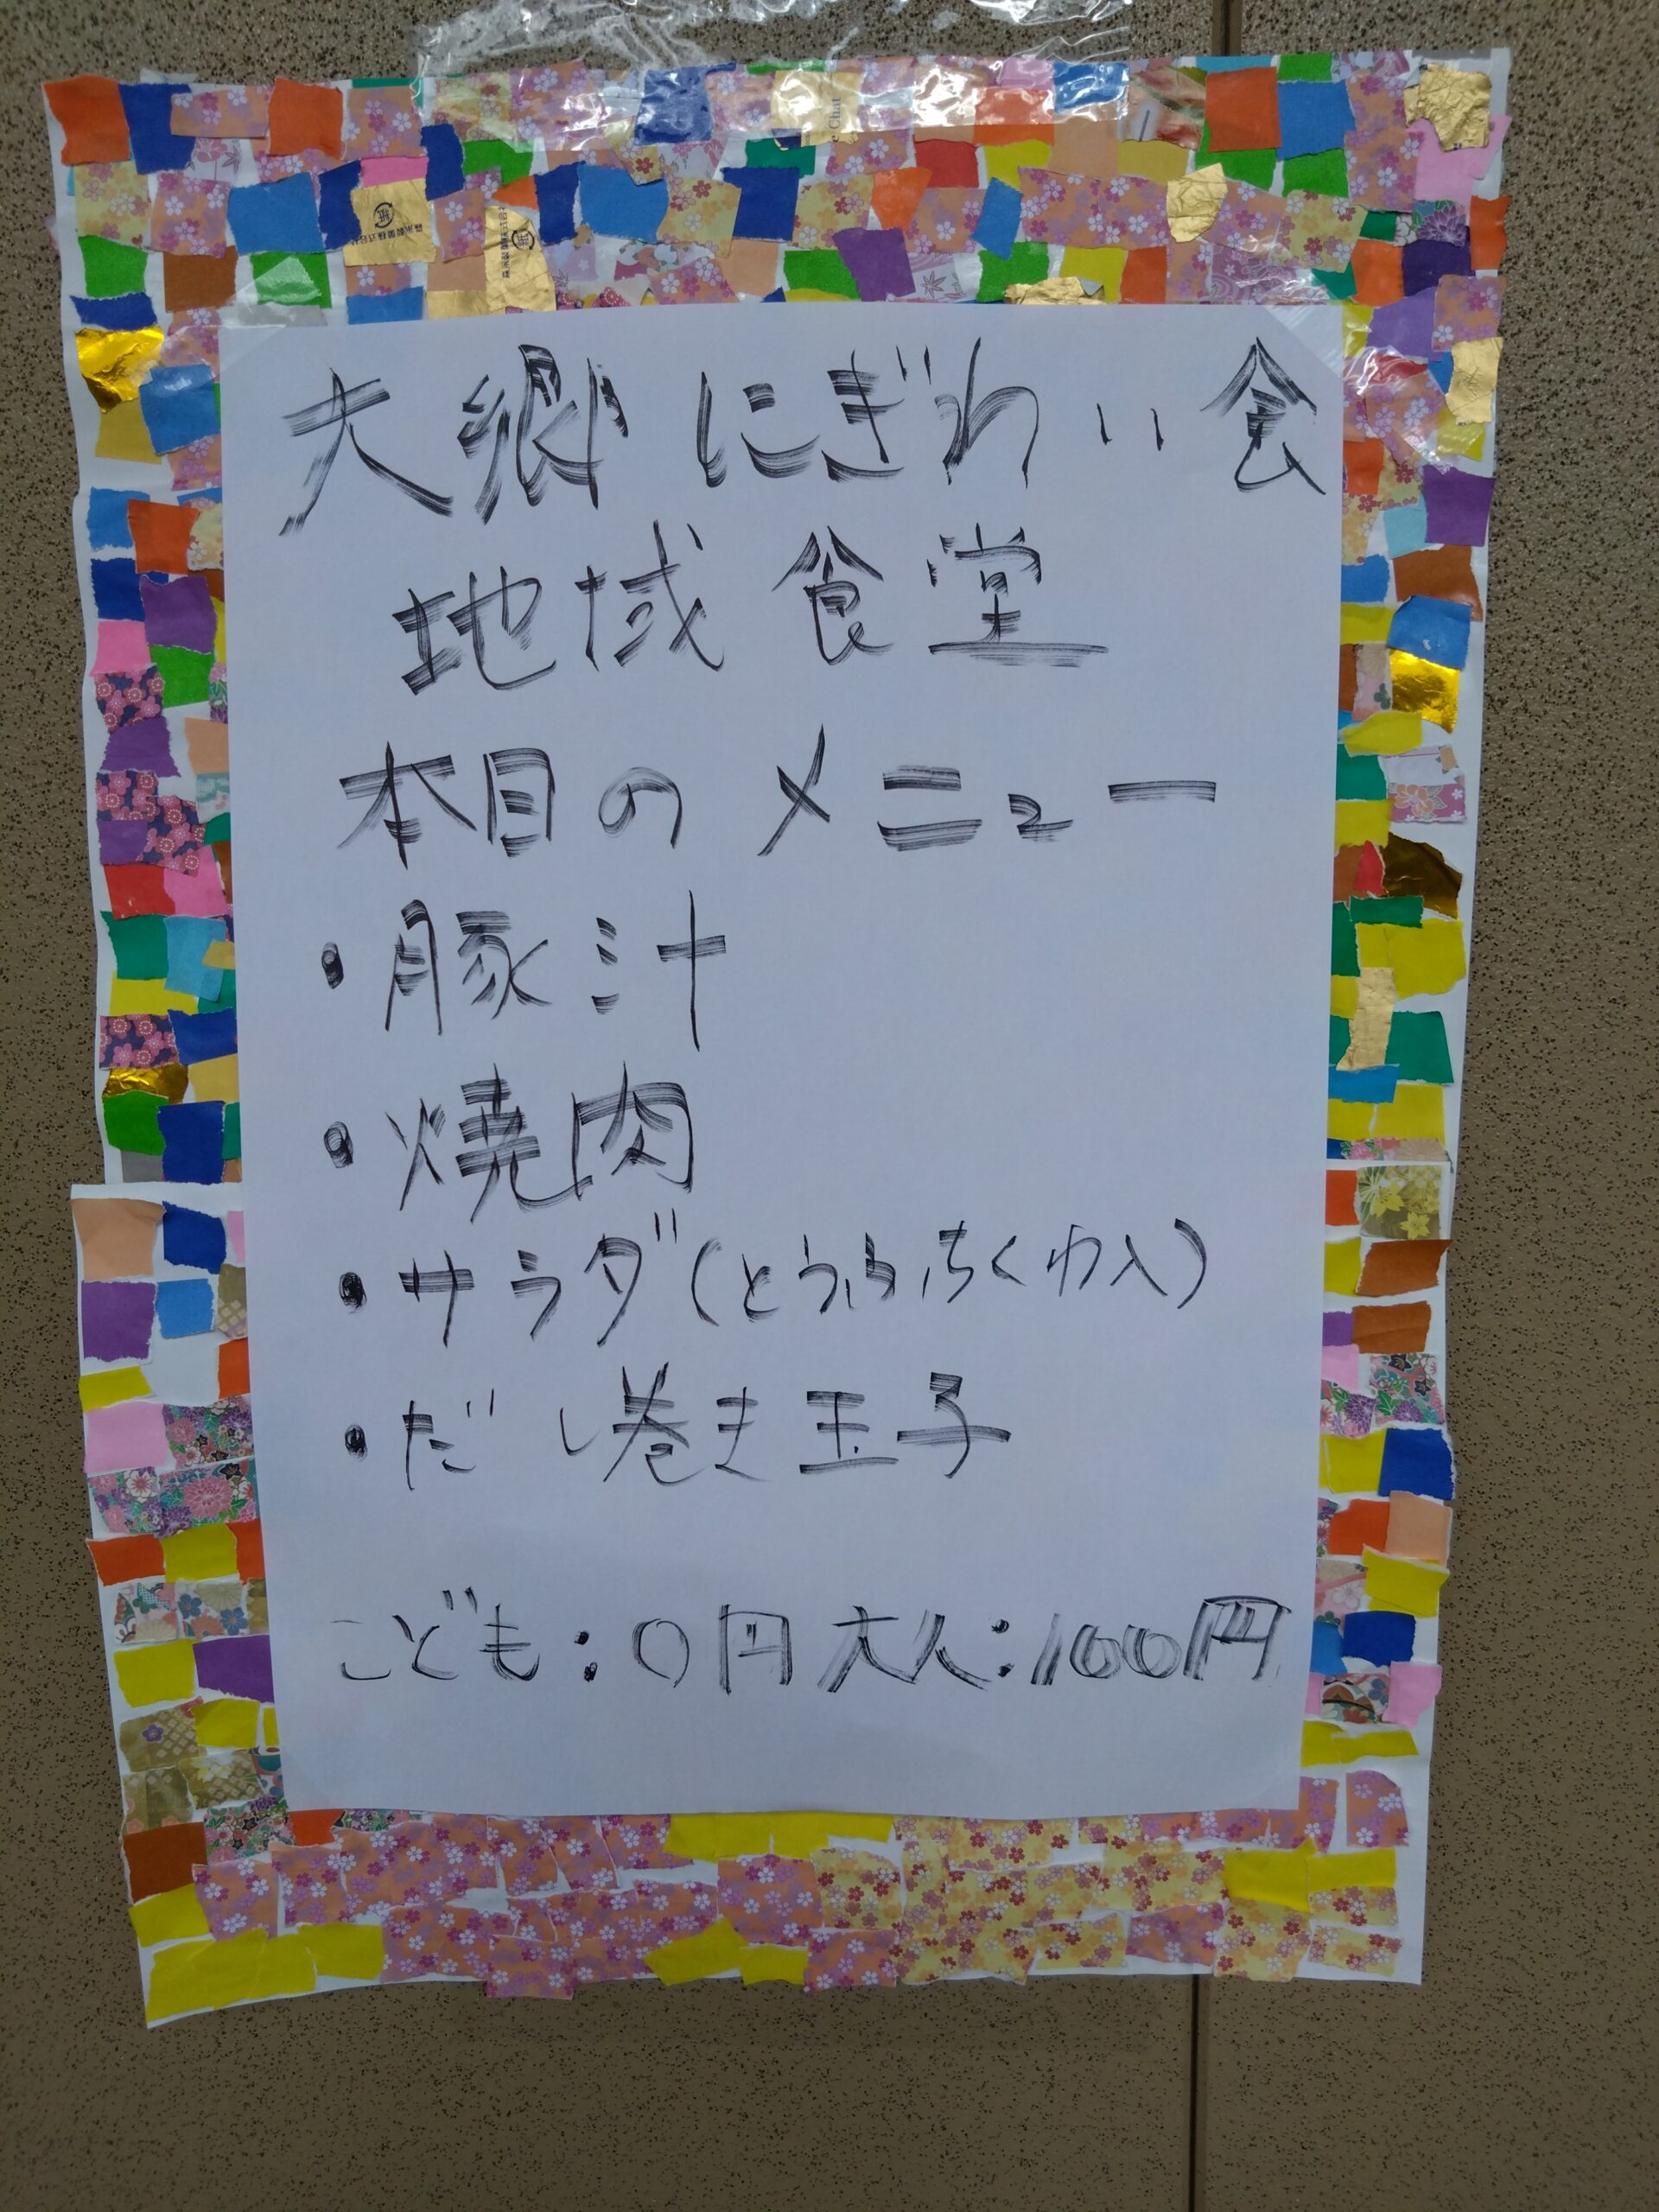 大郷にぎわい会
地域食堂
本日のメニュー
・豚汁
・焼肉
・サラダ(とうふ、ちくわ入)
・だし巻き玉子
こども:0円 大人:100円